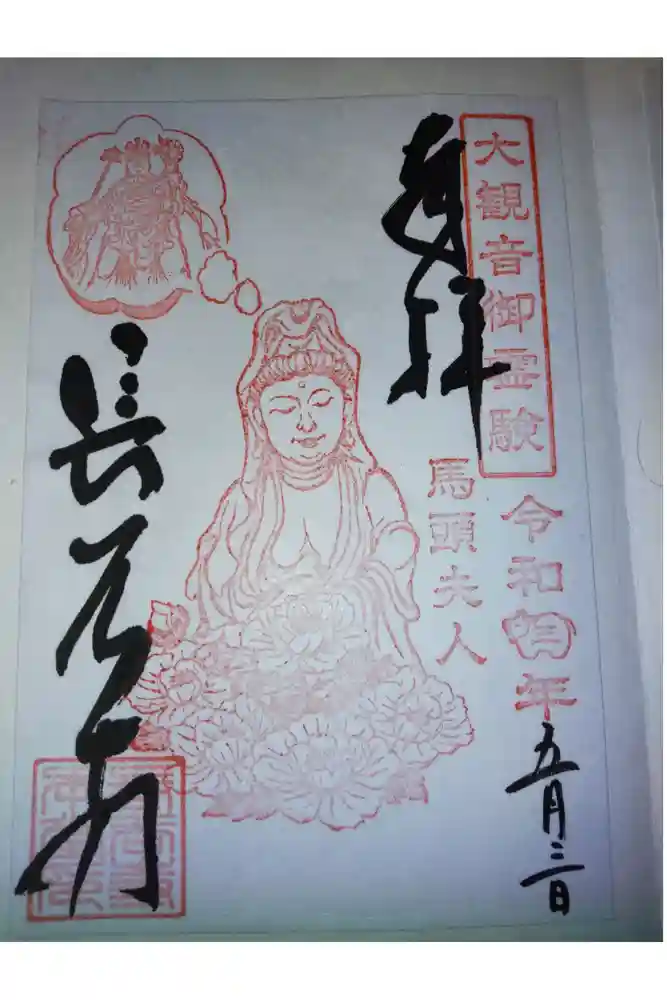 大観音御霊験
奉拝
令和四年五月三日
馬頭夫人
長谷寺